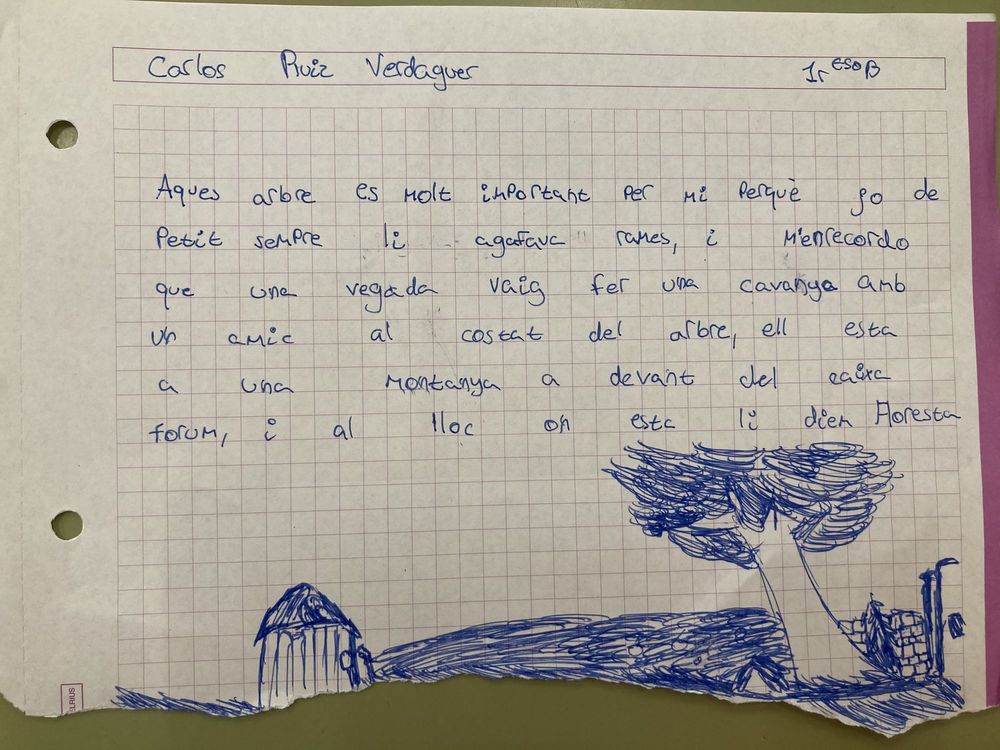 Carlos Ruiz Verdaguer 1r ESO B
Aques arbre es molt important per mi perquè jo de
petit sempre li agafava rames, i m'enrecordo
que una vegada vaig fer una cavanya amb
un amic al costat del arbre, ell esta
a una montanya a devant del caixa
forum, i al lloc on esta li dien Floresta
ELRIUS